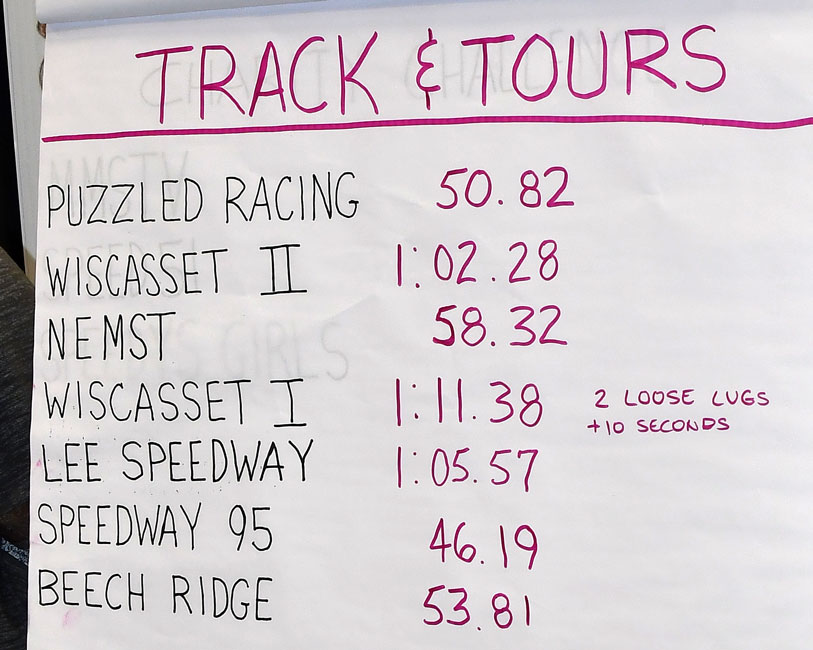 TRACK & TOURS
PUZZLED RACING 50.82
WISCASSET II 1:02.28
NEMST 58.32
WISCASSET I 1:11.38 2 LOOSE LUGS
+10 SECONDS
LEE SPEEDWAY 1:05.57
SPEEDWAY 95 46.19
BEECH RIDGE 53.81